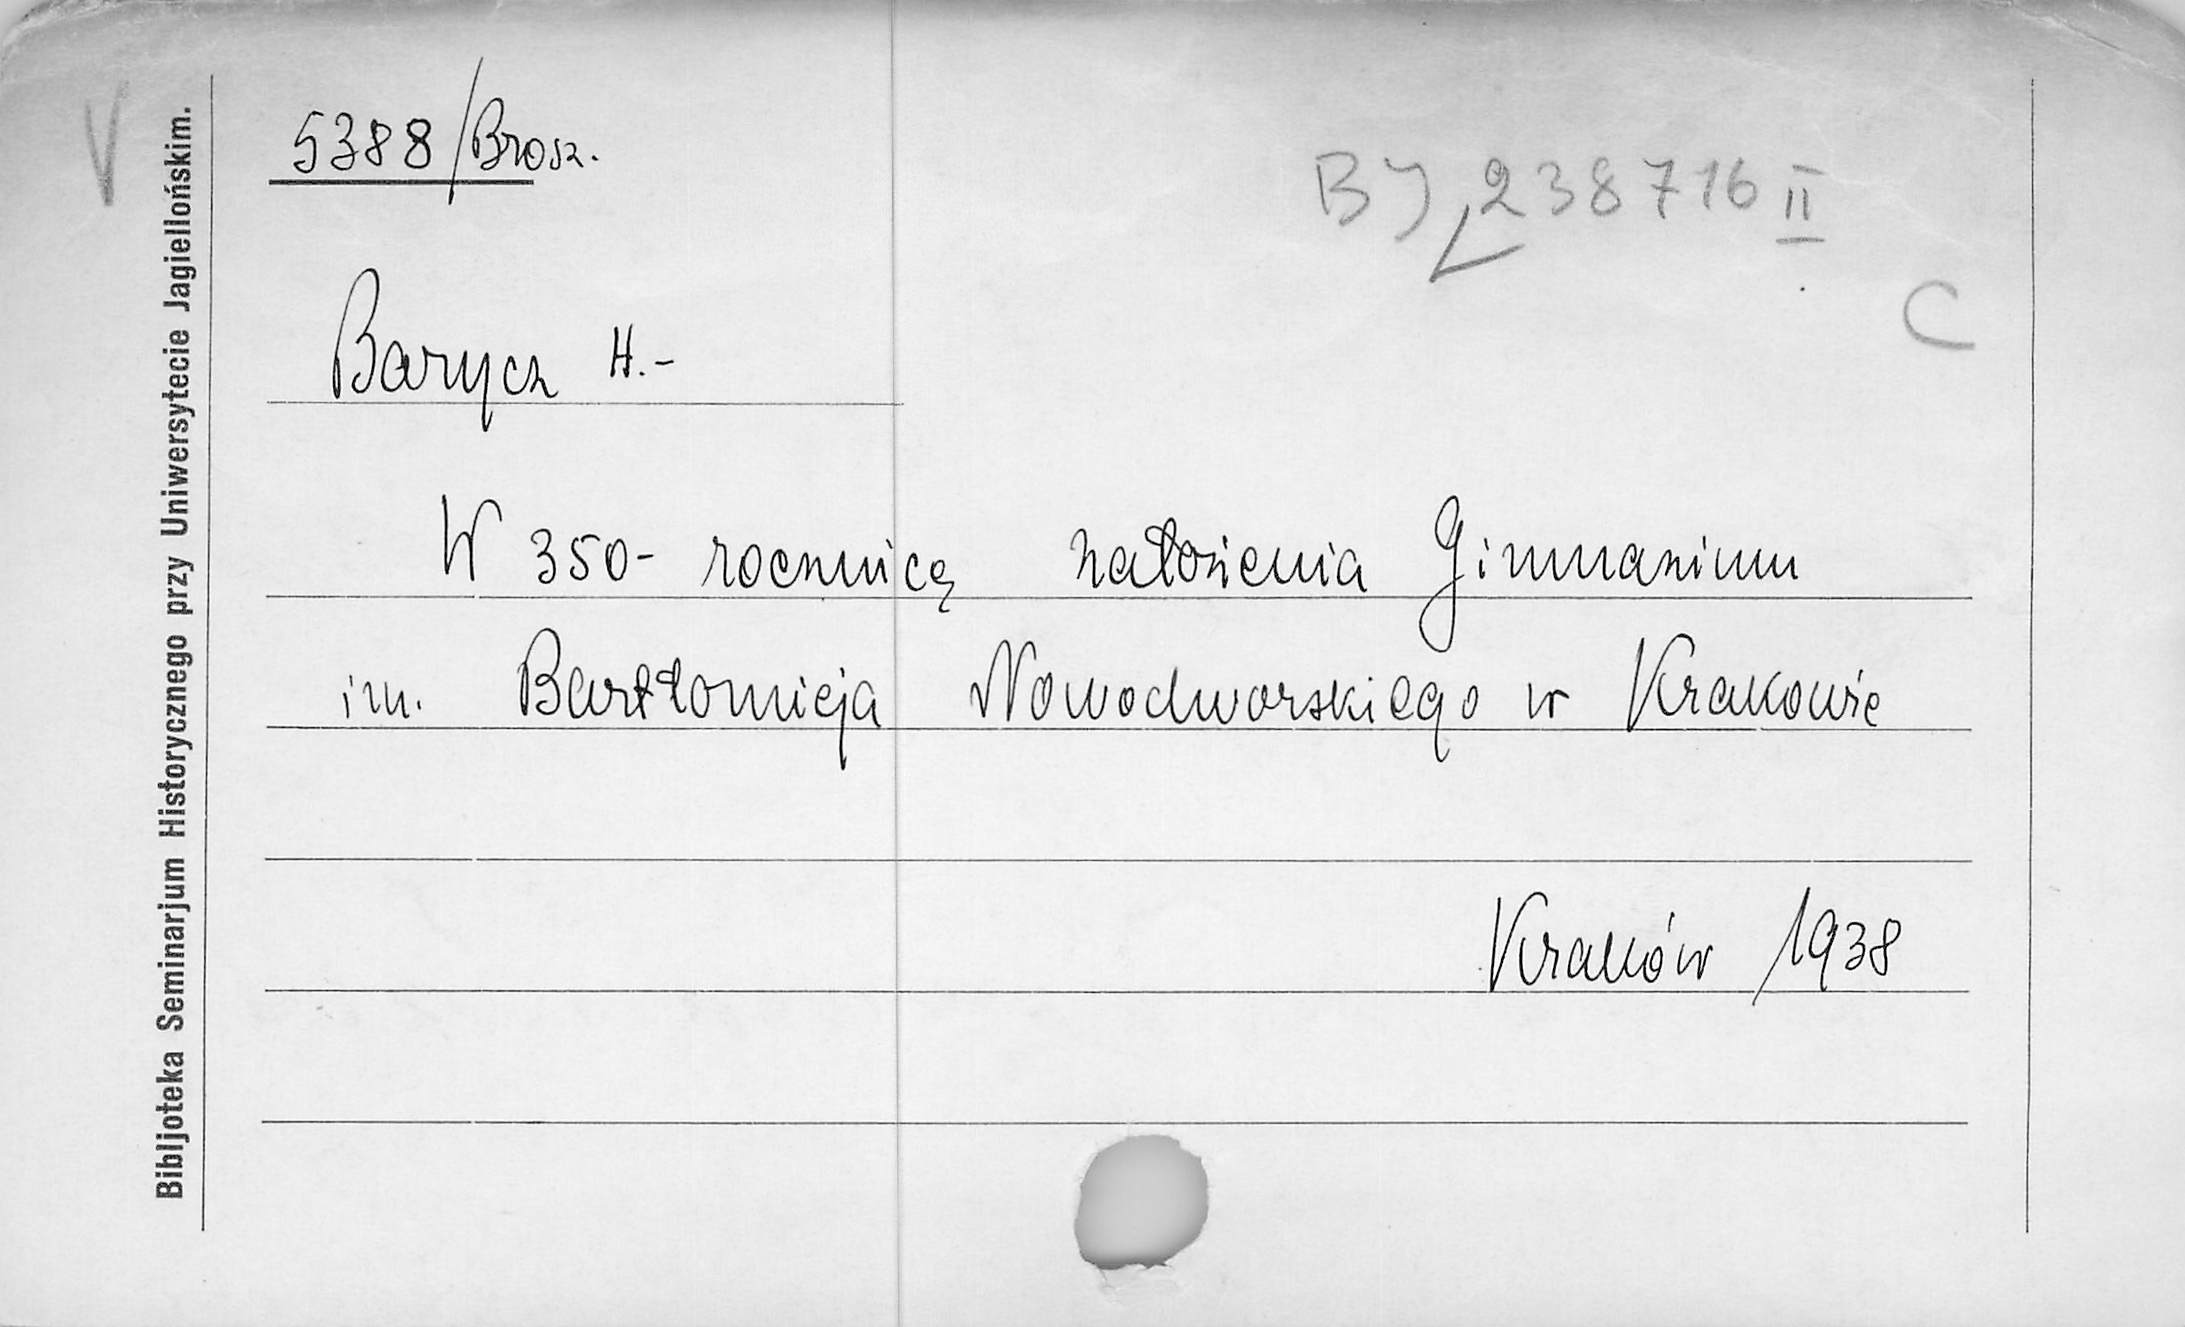 V
Bibljoteka Seminarjum Historycznego przy Uniwersytecie Jagiellońskim.
5388/Brosz.
BJ 238716 II
C
Barycz H.-
W 350- rocznicę założenia Gimnazium
im. Bartłomieja Nowodworskiego w Krakowie
Kraków 1938